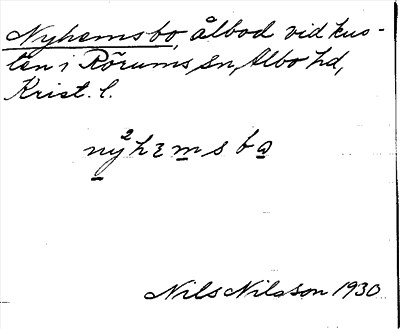 Nyhemsbo, ålbod vid kus-
ten i Rörums sn, Albo hd,
Krist. l.
Nils Nilsson 1930